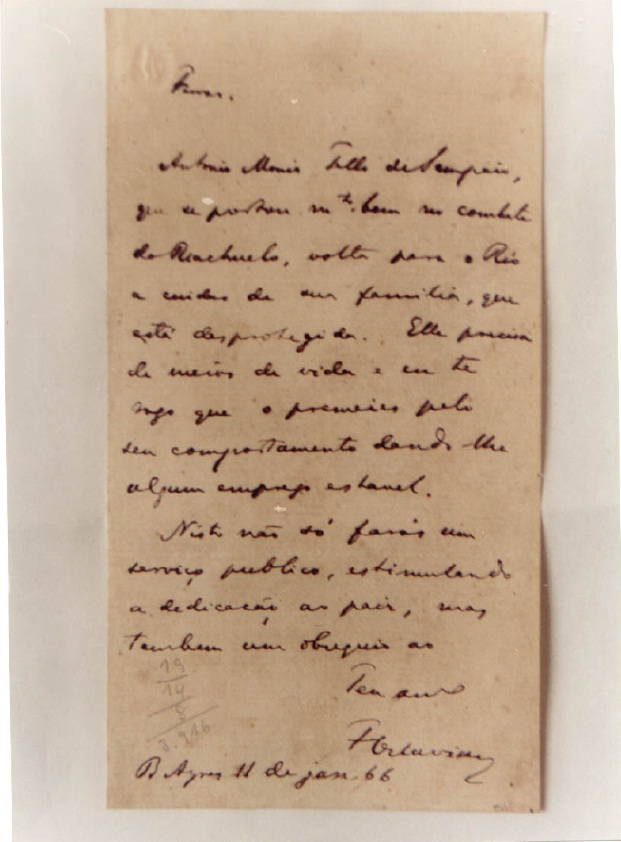 Ferraz.
Antonio Moniz Tello de Sampaio,
que se portou m.to bem no combate
do Riachuelo, volta para o Rio
a cuidar de sua familia, que
está desprotegida. Elle precisa
de meios de vida e eu te
rogo que o premeies pelo
seu comportamento dando-lhe
algum emprego estavel.
Nisto não só farás um
serviço publico, estimulando
a dedicação ao paiz, mas
tambem um obsequio ao
Teu am.o
F Octaviano
B Ayres 11 de jan. 66
19
14